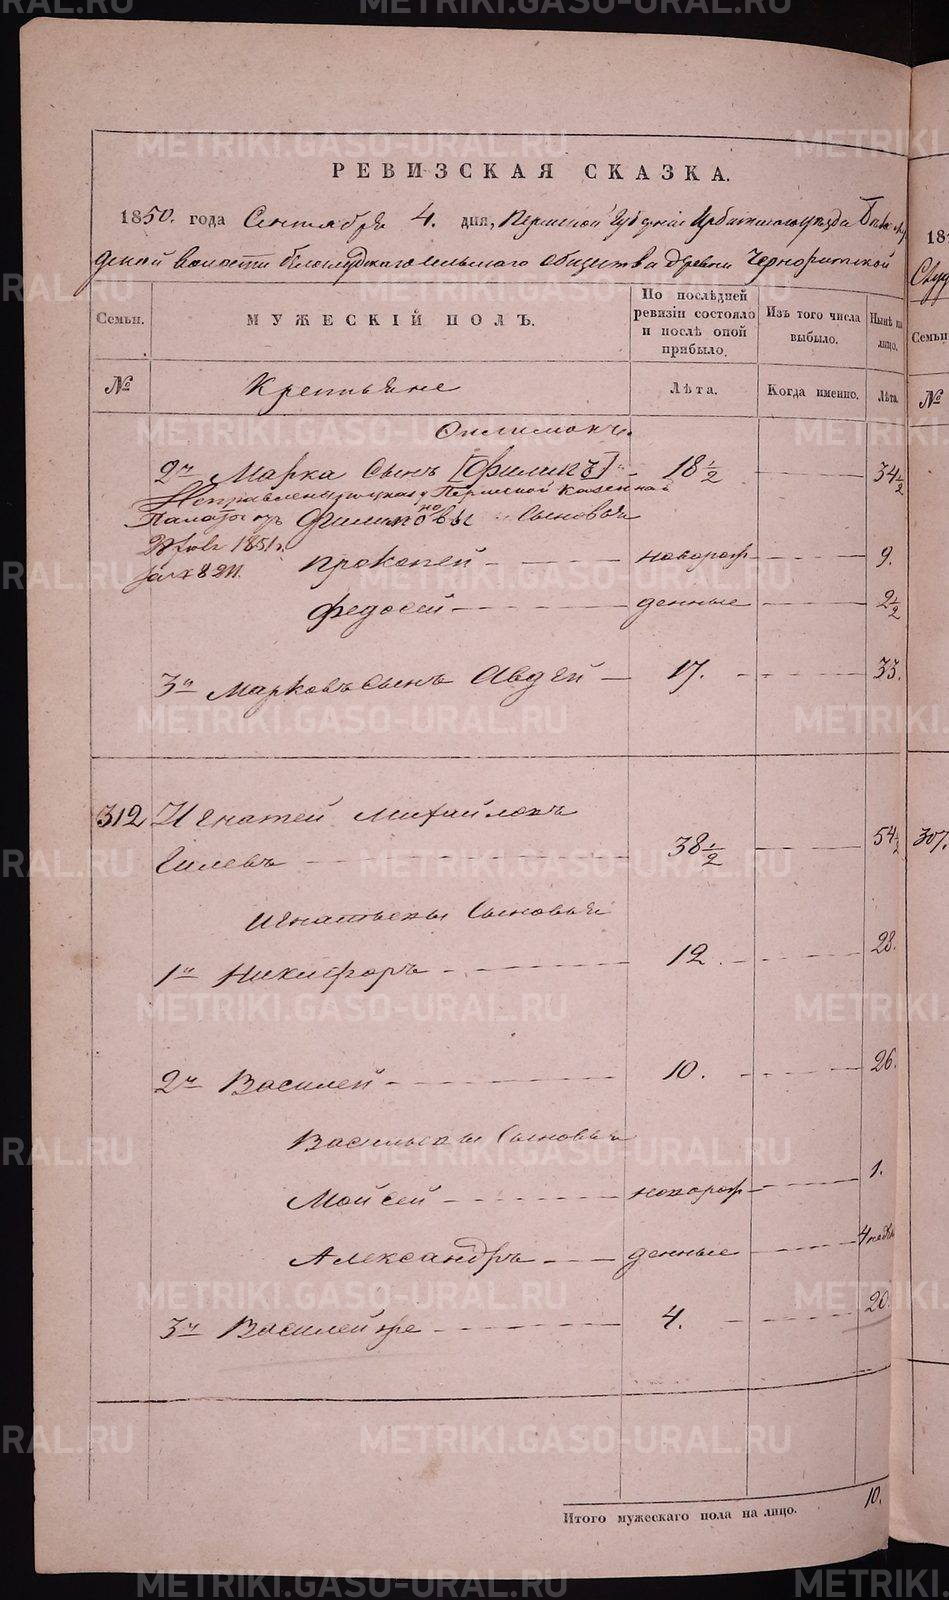 РЕВИЗСКАЯ СКАЗКА.
1850. года Сентября 4. дня, Пермской Губерніи Ирбитскаго уѣзда
волости Бѣлослудскаго сельскаго общества деревни
Семьи.
МУЖЕСКІЙ ПОЛЪ.
По послѣдней ревизіи состояло и послѣ оной прибыло.
Изъ того числа выбыло.
Нынѣ на лицо.
№
Крестьяне
Лѣта.
Когда именно.
Лѣта.
Филимонъ.
2й Марка Сынъ [Филипъ] 18½ 34½
Пермской Казенной
Палаты
Филимоновы Сыновья
1851 г.
Прокопей новорож 9.
Федосей денные 2½
3й Марковъ Сынъ Авдей 17. 33.
312 Игнатей Михайловъ
Гилевъ 38½ 54½
Игнатьевы Сыновья
1й Никифоръ 12. 28.
2й Василей 10. 26.
Васильевы Сыновья
Мойсей новорож 1.
Александръ денные 4 недѣли
3й Василей же 4. 20.
Итого мужескаго пола на лицо. 10.
18
Семьи
№
307.
METRIKI.GASO-URAL.RU